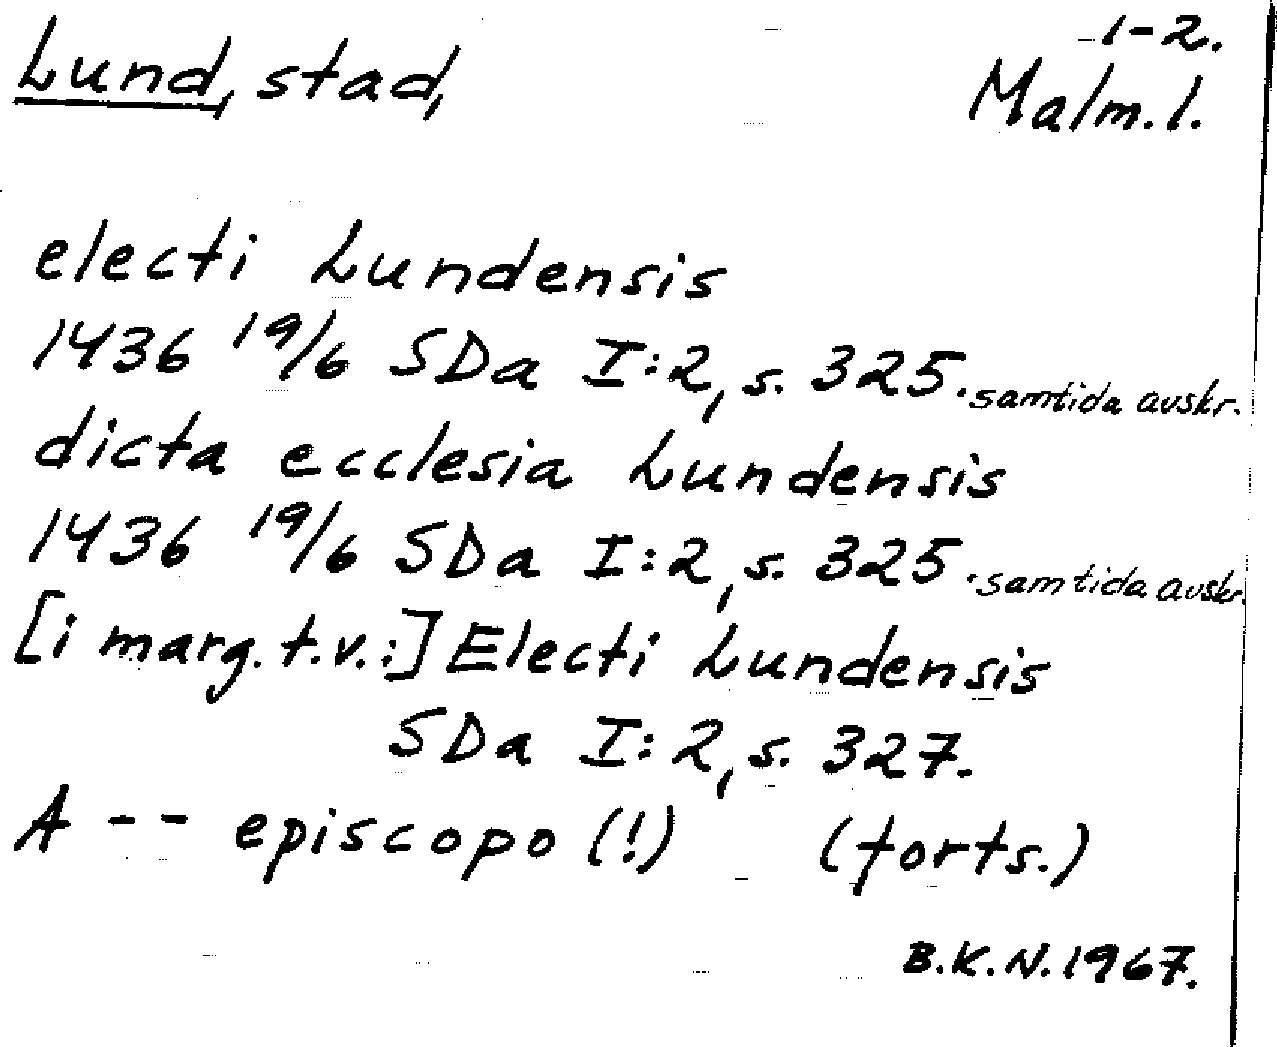 Lund, stad, 1-2.
Malm.l.
electi Lundensis
1436 19/6 SDa I:2, s. 325. samtida avskr.
dicta ecclesia Lundensis
1436 19/6 SDa I:2, s. 325. samtida avskr.
[i marg. t.v.:] Electi Lundensis
SDa I:2, s. 327.
A -- episcopo (!) (forts.)
B.K.N. 1967.